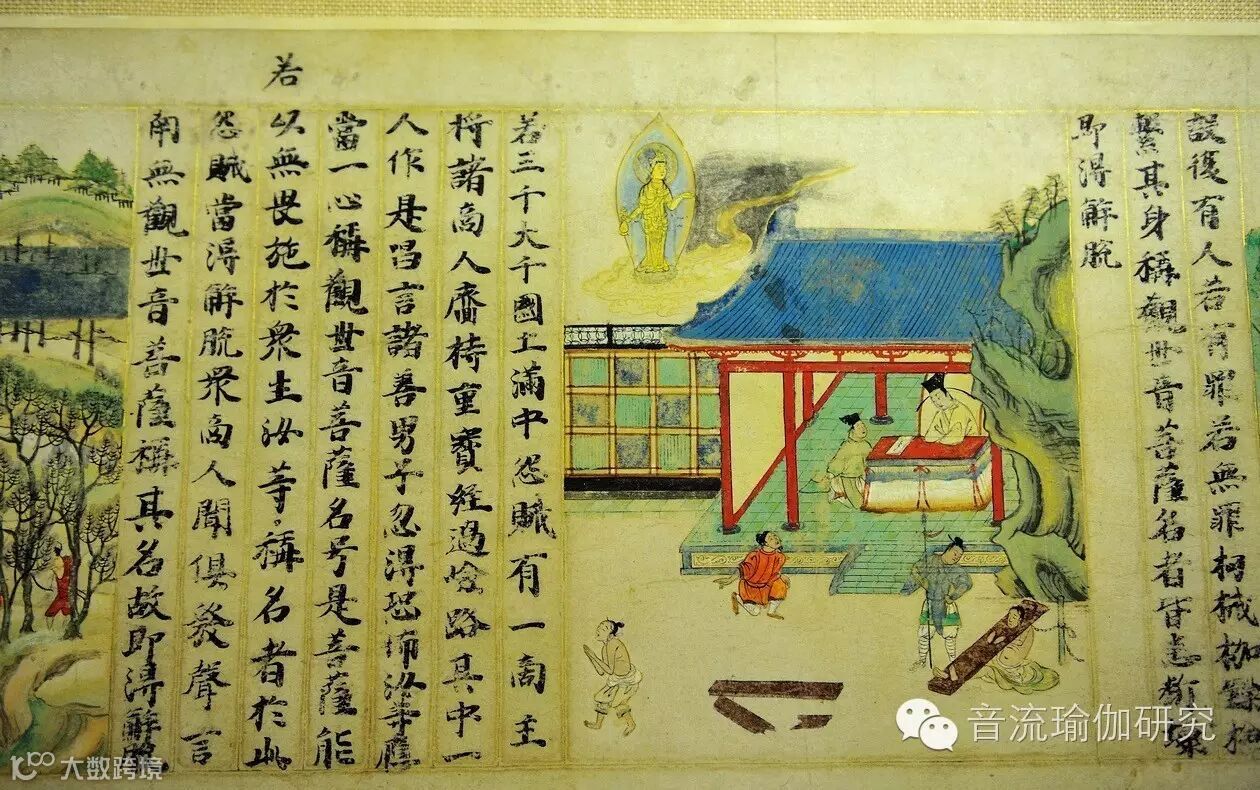 設復有人若有罪若無罪杻械枷
繫其身稱觀世音菩薩名者皆悉斷壞
即得解脫
若三千大千國土滿中怨賊有一商主
將諸商人齎持重寶經過嶮路其中一
人作是唱言諸善男子忍得恐怖汝等應
當一心稱觀世音菩薩名号是菩薩能
若
以無畏施於衆生汝等稱名者於此
怨賊當得解脫衆商人聞俱發聲言
南無觀世音菩薩稱其名故即得解脫
音流瑜伽研究
大数跨境